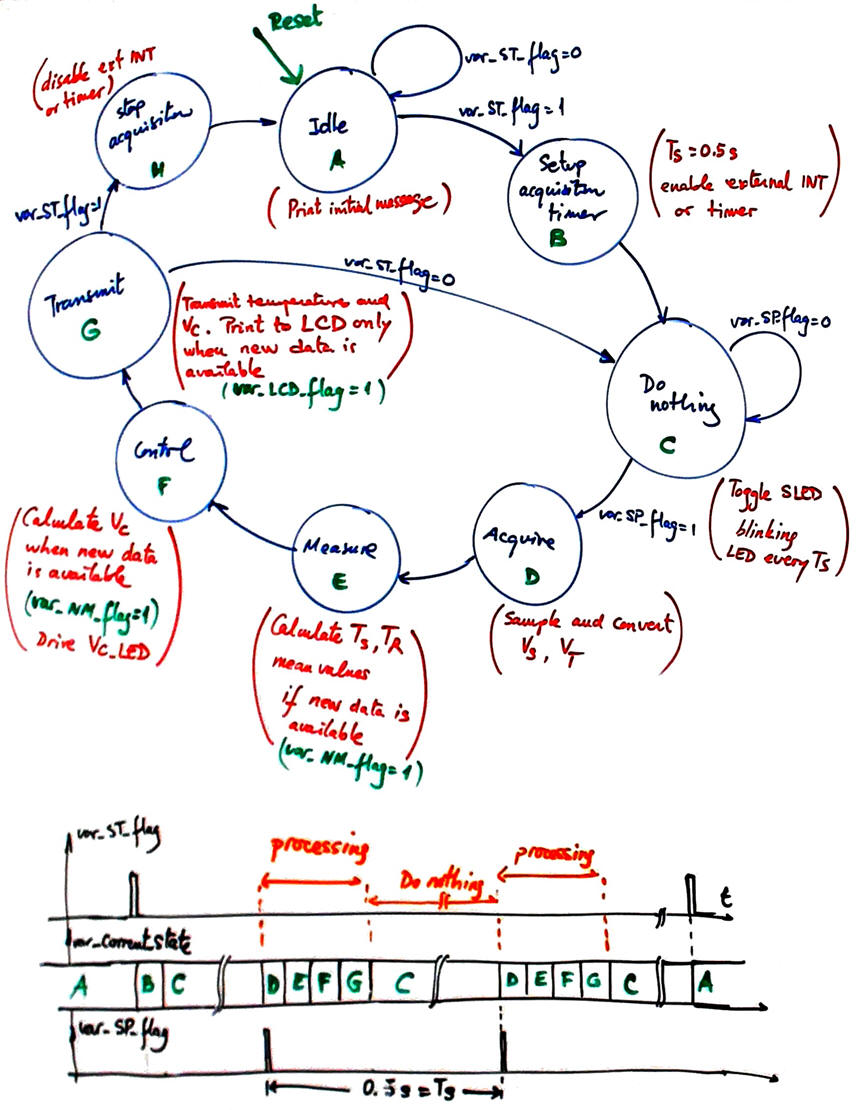 Reset
(disable ext INT
or timer)
stop
acquisition
H
Idle
A
var_ST_flag=0
var_ST_flag=1
(Print initial message)
Setup
acquisition
timer
B
(Ts=0.5s
enable external INT
or timer)
var_ST_flag=1
Transmit
G
var_ST_flag=0
(Transmit temperature and
Vc. Print to LCD only
when new data is
available)
(var_LCD_flag=1)
var_SP_flag=0
Do
nothing
C
(Toggle SLED
blinking
LED every Ts)
var_SP_flag=1
Control
F
(Calculate Vc
when new data
is available
(var_NM_flag=1)
Drive Vc_LED)
Measure
E
(Calculate Ts, TR
mean values
if new data is
available
(var_NM_flag=1)
Acquire
D
(Sample and convert
Vs, VT)
var_ST_flag
processing
Do nothing
processing
t
var_current_state
A B C D E F G C D E F G C A
var_SP_flag
0.5s=Ts